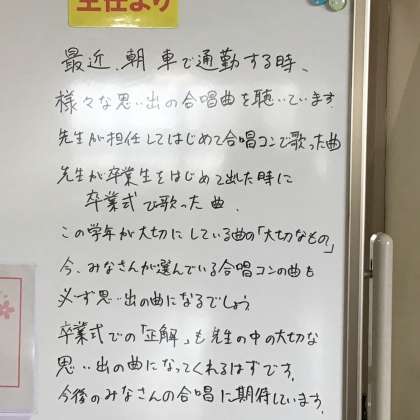 主任より
最近、朝車で通勤する時、
様々な思い出の合唱曲を聴いています
先生が担任してはじめて合唱コンで歌った曲
先生が卒業生をはじめて出した時に
卒業式で歌った曲.
この学年が大切にしている曲の「大切なもの」
今、みなさんが選んでいる合唱コンの曲も
必ず思い出の曲になるでしょう
卒業式での「正解」も先生の中の大切な
思い出の曲になってくれるはずです。
今後のみなさんの合唱に期待しています.